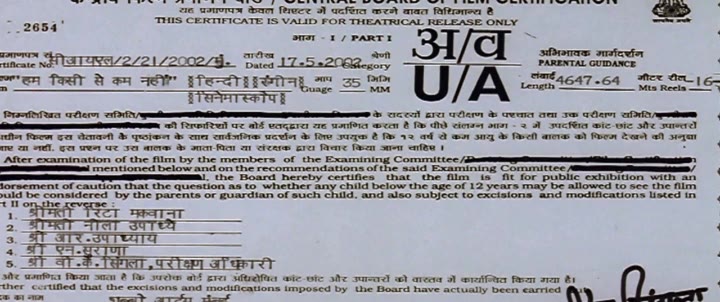 CENTRAL BOARD OF FILM CERTIFICATION
यह प्रमाणपत्र केवल थिएटर में प्रदर्शित करने बाबत विधिमान्य है
THIS CERTIFICATE IS VALID FOR THEATRICAL RELEASE ONLY
2654
भाग - I / PART I
प्रमाणपत्र सं. सीआयएल/2/21/2002/मुं. तारीख श्रेणी अ/व अभिभावक मार्गदर्शन
rtificate No. Dated 17.5.2002 Category U/A PARENTAL GUIDANCE
"हम किसी से कम नहीं" हिन्दी रंगीन माप 35 मिमि लंबाई 4647.64 मीटर रील-16
Guage MM Length Mts Reels
सिनेमास्कोप
निम्नलिखित परीक्षण समिति/ के सदस्यों द्वारा परीक्षण के पश्चात तथा उक्त परीक्षण समिति/
की सिफारिशों पर बोर्ड एतद्द्वारा यह प्रमाणित करता है कि पीछे संलग्न भाग - २ में उपदर्शित कांट-छांट और उपान्तरों
धीन फिल्म इस चेतावनी के पृष्ठांकन के साथ सार्वजनिक प्रदर्शन के लिए उपयुक्त है कि १२ वर्ष से कम आयु के किसी बालक को फिल्म देखने की अनुज्ञा
जाए या नहीं. इस प्रश्न पर उस बालक के माता-पिता या संरक्षक द्वारा विचार किया जाना चाहिये ।
After examination of the film by the members of the Examining Committee/
mentioned below and on the recommendations of the said Examining Committee/
, the Board hereby certifies that the film is fit for public exhibition with an
dorsement of caution that the question as to whether any child below the age of 12 years may be allowed to see the film
ould be considered by the parents or guardian of such child, and also subject to excisions and modifications listed in
rt II on the reverse
1. श्रीमती रिटा मकवाना
2. श्रीमती नीला उपाध्ये
3. श्री आर.उपाध्याय
4. श्री एन.सुराणा
5. श्री वी.के.सिंगला,परीक्षण अधिकारी
और प्रमाणित किया जाता है कि उपरोक्त बोर्ड द्वारा अधिरोपित कांट-छांट और उपान्तरों को वास्तव में कार्यान्वित किया गया है।
rther certified that the excisions and modifications imposed by the Board have actually been carried